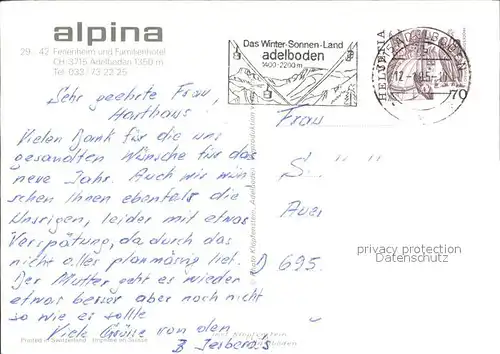 alpina
29. 42 Ferienheim und Familienhotel
CH-3715 Adelboden 1350 m
Tel. 033 - 73 22 25
Das Winter-Sonnen-Land
adelboden
1400-2200 m
ADELBODEN
HELVETIA
70
Sehr geehrte Frau,
Harthaus!
Vielen Dank für die uns
gesandten Wünsche für das
neue Jahr. Auch wir wün-
schen Ihnen ebenfalls die
Unsrigen, leider mit etwas
Verspätung, da durch das
nicht alles planmäsig lief.
Der Mutter geht es wieder
etwas besser aber noch nicht
so wie es sollte
Viele Grüße von den
Frau
S.
Auer
D 695.
privacy protection
Datenschutz
Printed in Switzerland Imprimé en Suisse